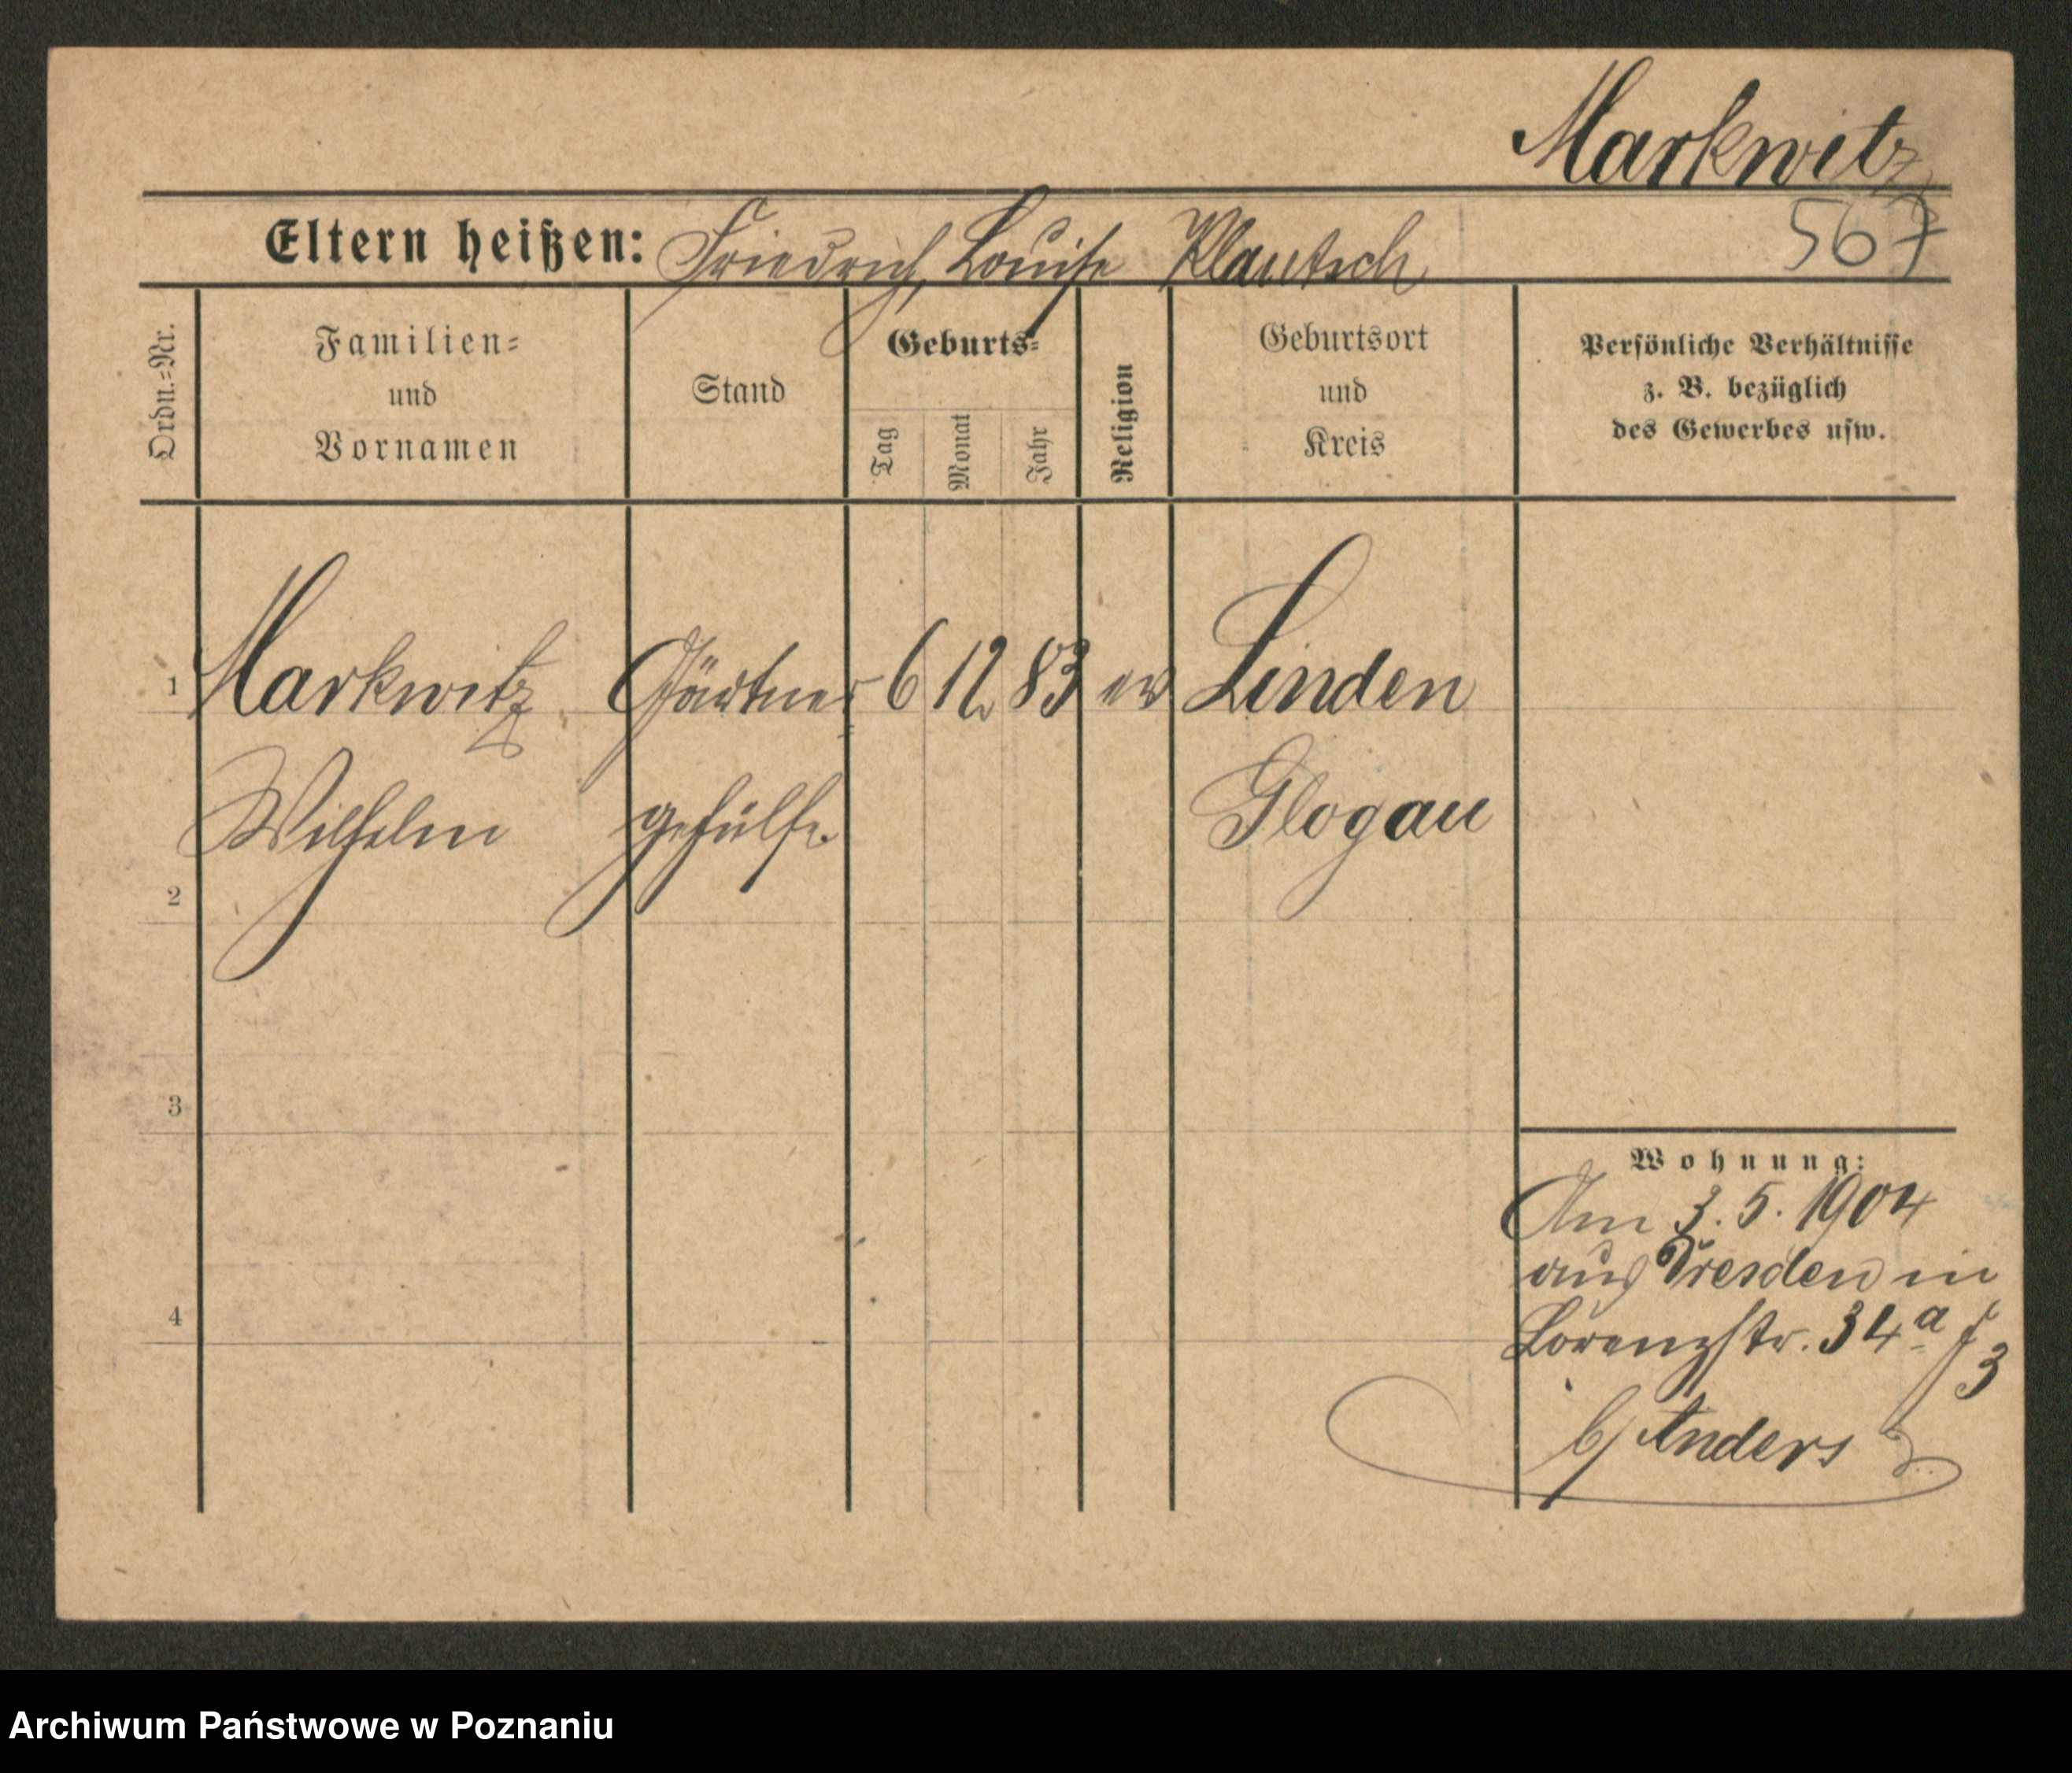 Markwitz
567
Eltern heißen: Friedrich, Louise Klautsch
Ordn.=Nr.
Familien=
und
Vornamen
Stand
Geburts=
Tag
Monat
Jahr
Religion
Geburtsort
und
Kreis
Persönliche Verhältnisse
z. B. bezüglich
des Gewerbes usw.
1 Markwitz Gärtner 6 12 83 ev Linden
Wilhelm gehülfe Glogau
2
3
4
Wohnung:
Am 3. 5. 1904
aus Dresden in
Lorenzstr. 34a
3
b/ Anders
Archiwum Państwowe w Poznaniu